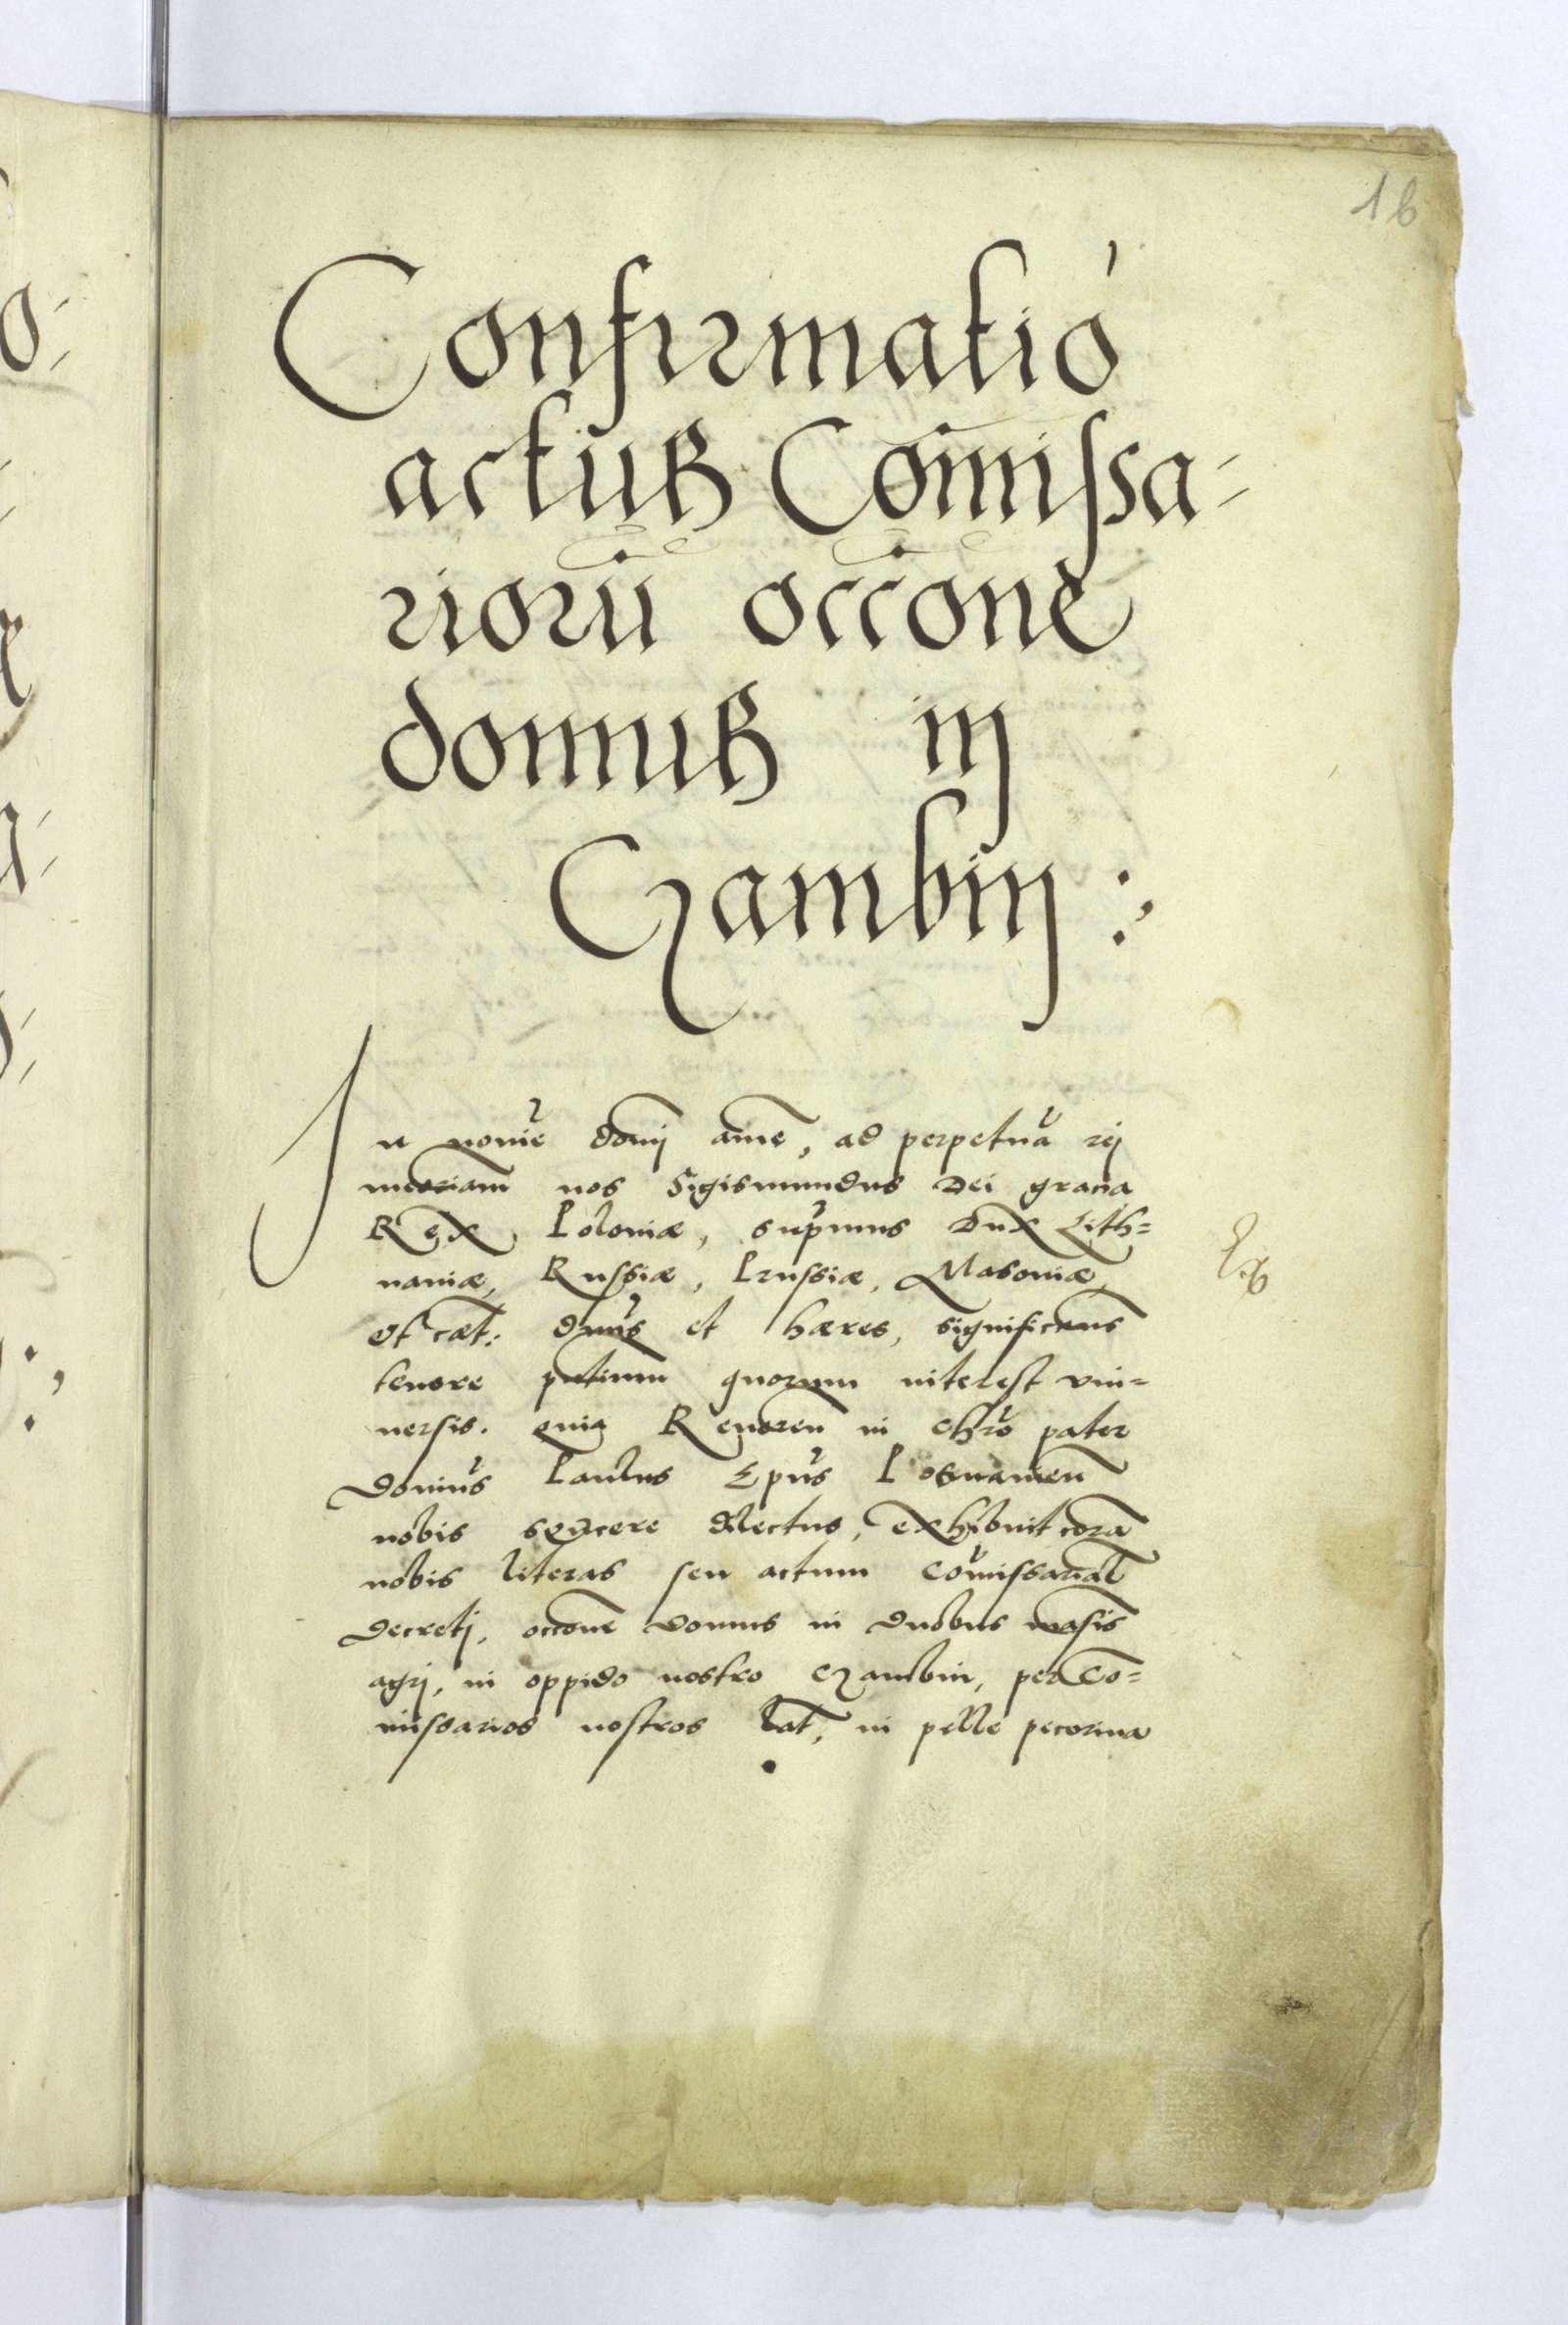 16
Confirmatió
actus Com̃issa-
riorũ occõne
domus in
Czambin :
In nomĩe domj amẽ, ad perpetuã rej
meoriam̃ nos Sigismundus Dei gracia
Rex Poloniæ, sup̃mus Dux Lith=
uaniæ, Russiæ, Prussiæ, Masouiæ
et cæt: dnũs et hæres, significamus̃
tenore pñtium quorum interest vni=
uersis. quia Reueren̄ in Chr̃o pater
Dominũs Paulus Epũs Posnanien̄
nobis syncere dilectus, exhibuit corã
nobis literas seu actum com̃issarial̃
decretj, occõne domus in duobus mãsis
agrj, in oppido nostro Czambin, per Co=
missarios nostros lat̃, in pelle pecorina